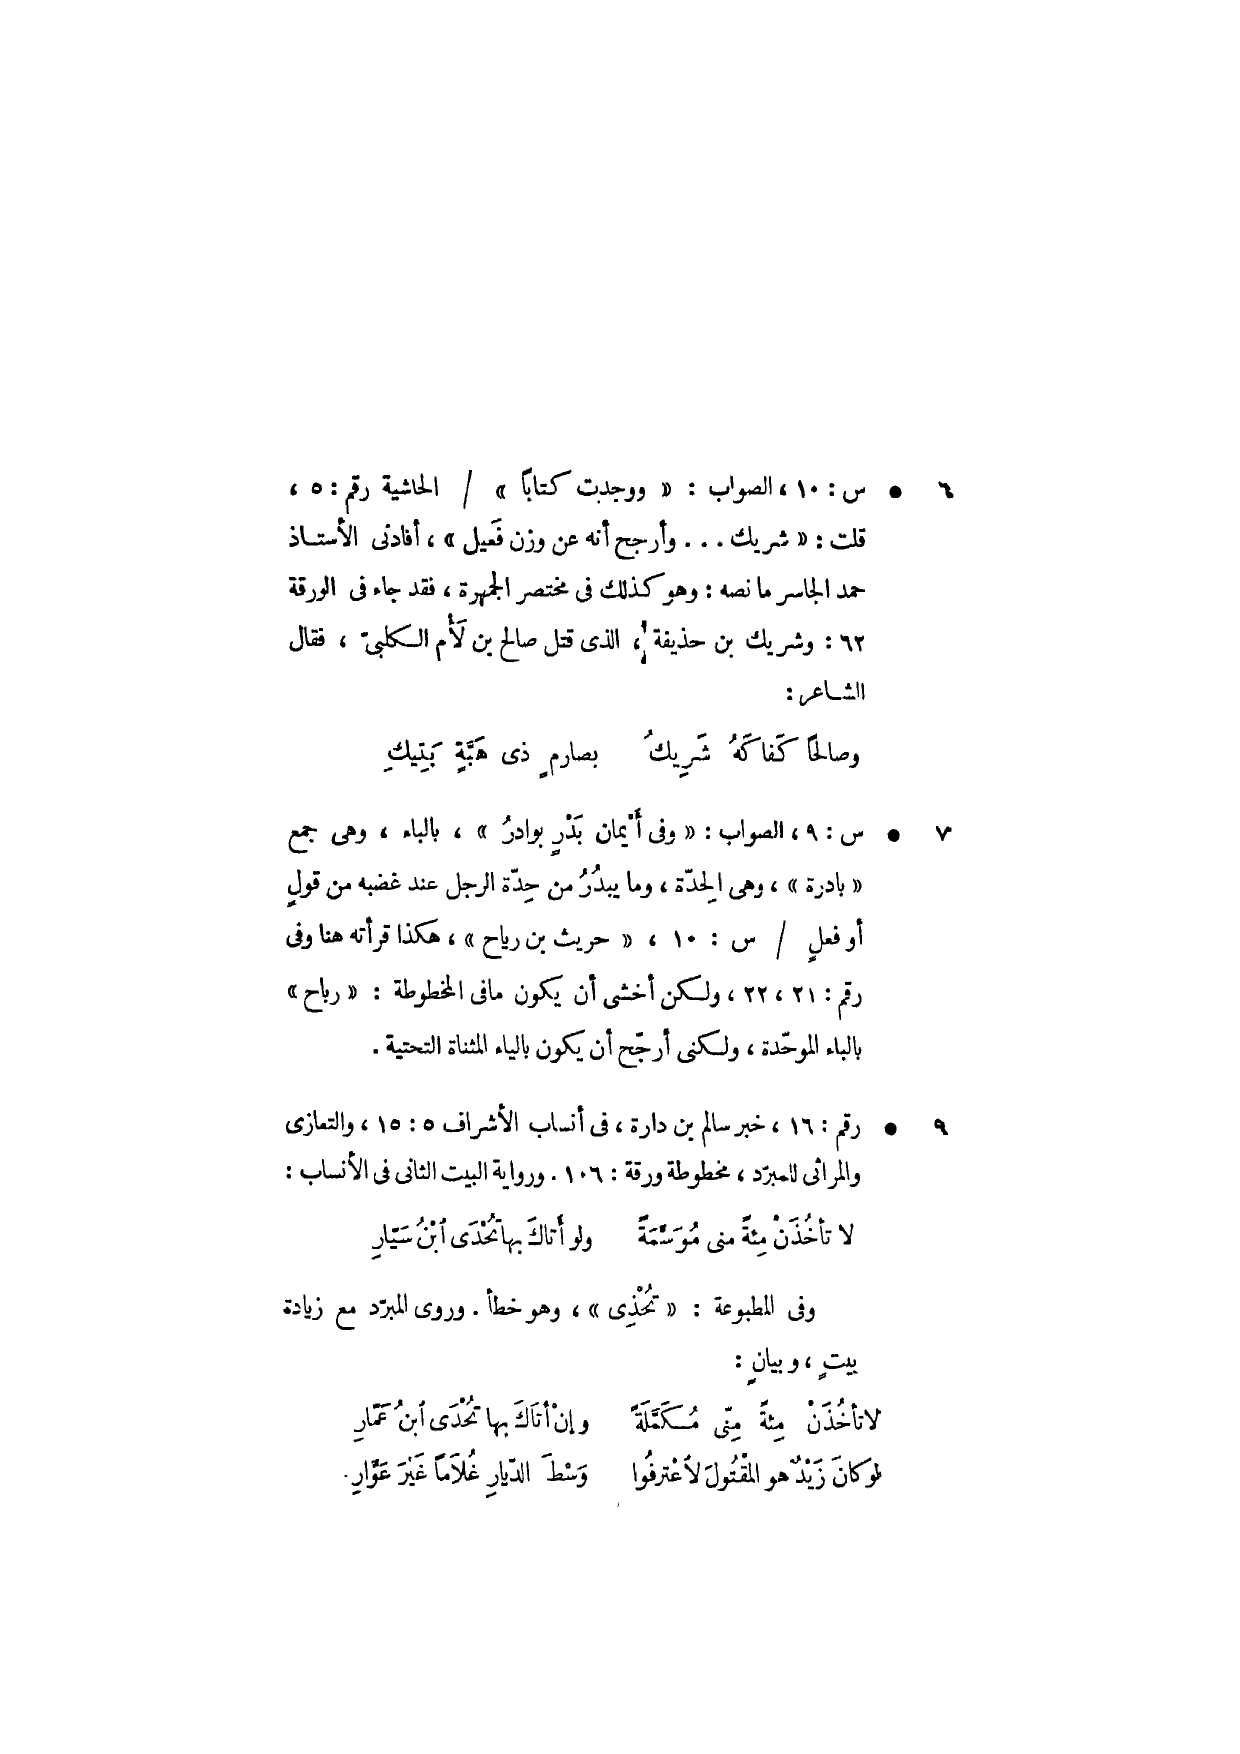 ٦ ● س : ١٠ ، الصواب : « ووجدت كتاباً » / الحاشية رقم : ٥ ،
قلت : « شريك . . . وأرجح أنه عن وزن فَعيل » ، أفادنى الأستـاذ
حمد الجاسر ما نصه : وهو كذلك فى مختصر الجمهرة ، فقد جاء فى الورقة
٦٢ : وشريك بن حذيفة ، الذى قتل صالح بن لَأْم الكلبىّ ، فقال
الشاعر :
وصالحًا كَفاكَهُ شَرِيكُ بصارمٍ ذى هَبَّةٍ بَتِيكِ
٧ ● س : ٩ ، الصواب : « وفى أَيْمان بَدْرٍ بوادرُ » ، بالباء ، وهى جمع
« بادرة » ، وهى الحِدّة ، وما يبدُرُ من حِدّة الرجل عند غضبه من قولٍ
أو فعلٍ / س : ١٠ ، « حريث بن رياح » ، هكذا قرأته هنا وفى
رقم : ٢١ ، ٢٢ ، ولكن أخشى أن يكون مافى المخطوطة : « رباح »
بالباء الموحّدة ، ولكنى أرجّح أن يكون بالياء المثناة التحتية .
٩ ● رقم : ١٦ ، خبر سالم بن دارة ، فى أنساب الأشراف ٥ : ١٥ ، والتعازى
والمراثى للمبرّد ، مخطوطة ورقة : ١٠٦ . ورواية البيت الثانى فى الأنساب :
لا تأخُذَنْ مِئةً منى مُوَسَّمَةً ولو أَتاكَ بها تُحْدَى ٱبْنُ سَيّارِ
وفى المطبوعة : « تُحْذِى » ، وهو خطأ . وروى المبرّد مع زيادة
بيتٍ ، وبيانٍ :
لا تأخُذَنْ مِئةً مِنّى مُكَمَّلَةً وإنْ أتَاكَ بها تُحْدَى ٱبنُ عَمّارِ
لو كانَ زَيْدٌ هو المقْتُولَ لأعْترفُوا وَسْطَ الدّيارِ غُلَامًا غَيْرَ عَوَّارِ.